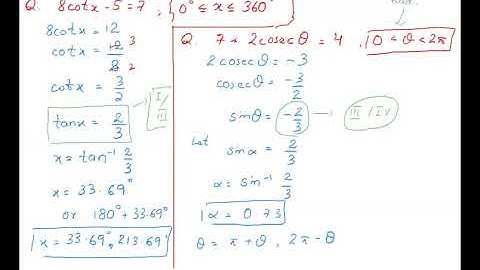 Q. 8cotx - 5 = 7, 0° ≤ x ≤ 360°
8cotx = 12
cotx = 12/8 3/2
cotx = 3/2
tanx = 2/3 → I/III
x = tan⁻¹ 2/3
x = 33.69°
or 180° + 33.69°
x = 33.69°, 213.69°
Rad.
Q. 7 + 2cosecθ = 4, 0 < θ < 2π
2cosecθ = -3
cosecθ = -3/2
sinθ = -2/3 → III / IV
Let sinα = 2/3
α = sin⁻¹ 2/3
α = 0.73
θ = π + θ, 2π - θ